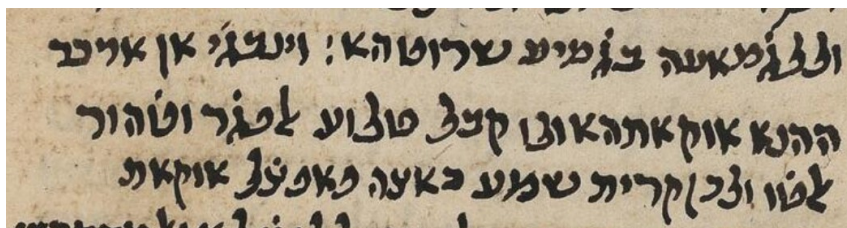 ואלגׄמאעה בגׄמיע שרוטהא: וינבגׄי אן אדכר
ההנא אוקאתהא קבל טלוע אלפגׄר וטׄהור
אלצׄו ולכן קרית שמע כאצה פאפצׄל אוקאת